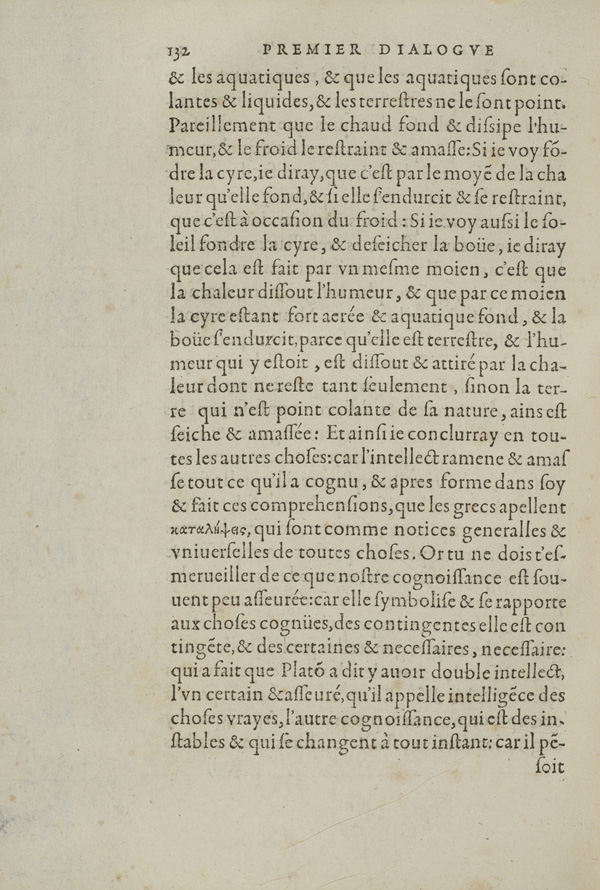 132 PREMIER DIALOGVE
& les aquatiques, & que les aquatiques ſont co-
lantes & liquides, & les terreſtres ne le ſont point.
Pareillement que le chaud fond & diſsipe l'hu-
meur, & le froid le reſtraint & amaſſe: Si ie voy fõ-
dre la cyre, ie diray, que c'eſt par le moyẽ de la cha
leur qu'elle fond, & ſi elle ſ'endurcit & ſe reſtraint,
que c'eſt à occaſion du froid: Si ie voy auſsi le ſo-
leil fondre la cyre, & deſeicher la boüe, ie diray
que cela eſt fait par vn meſme moien, c'eſt que
la chaleur diſſout l'humeur, & que par ce moien
la cyre eſtant fort aerée & aquatique fond, & la
boüe ſ'endurcit, parce qu'elle eſt terreſtre, & l'hu-
meur qui y eſtoit, eſt diſſout & attiré par la cha-
leur dont ne reſte tant ſeulement, ſinon la ter-
re qui n'eſt point colante de ſa nature, ains eſt
ſeiche & amaſſée: Et ainſi ie conclurray en tou-
tes les autres choſes: car l'intellect ramene & amaſ
ſe tout ce qu'il a cognu, & apres forme dans ſoy
& fait ces comprehenſions, que les grecs apellent
καταλήψεις, qui ſont comme notices generalles &
vniuerſelles de toutes choſes. Or tu ne dois t'eſ-
merueiller de ce que noſtre cognoiſſance eſt ſou-
uent peu aſſeurée: car elle ſymboliſe & ſe rapporte
aux choſes cognües, des contingentes elle eſt con
tingẽte, & des certaines & neceſſaires, neceſſaire:
qui a fait que Platõ a dit y auoir double intellect,
l'vn certain & aſſeuré, qu'il appelle intelligẽce des
choſes vrayes, l'autre cognoiſſance, qui eſt des in-
ſtables & qui ſe changent à tout inſtant: car il pẽ-
ſoit